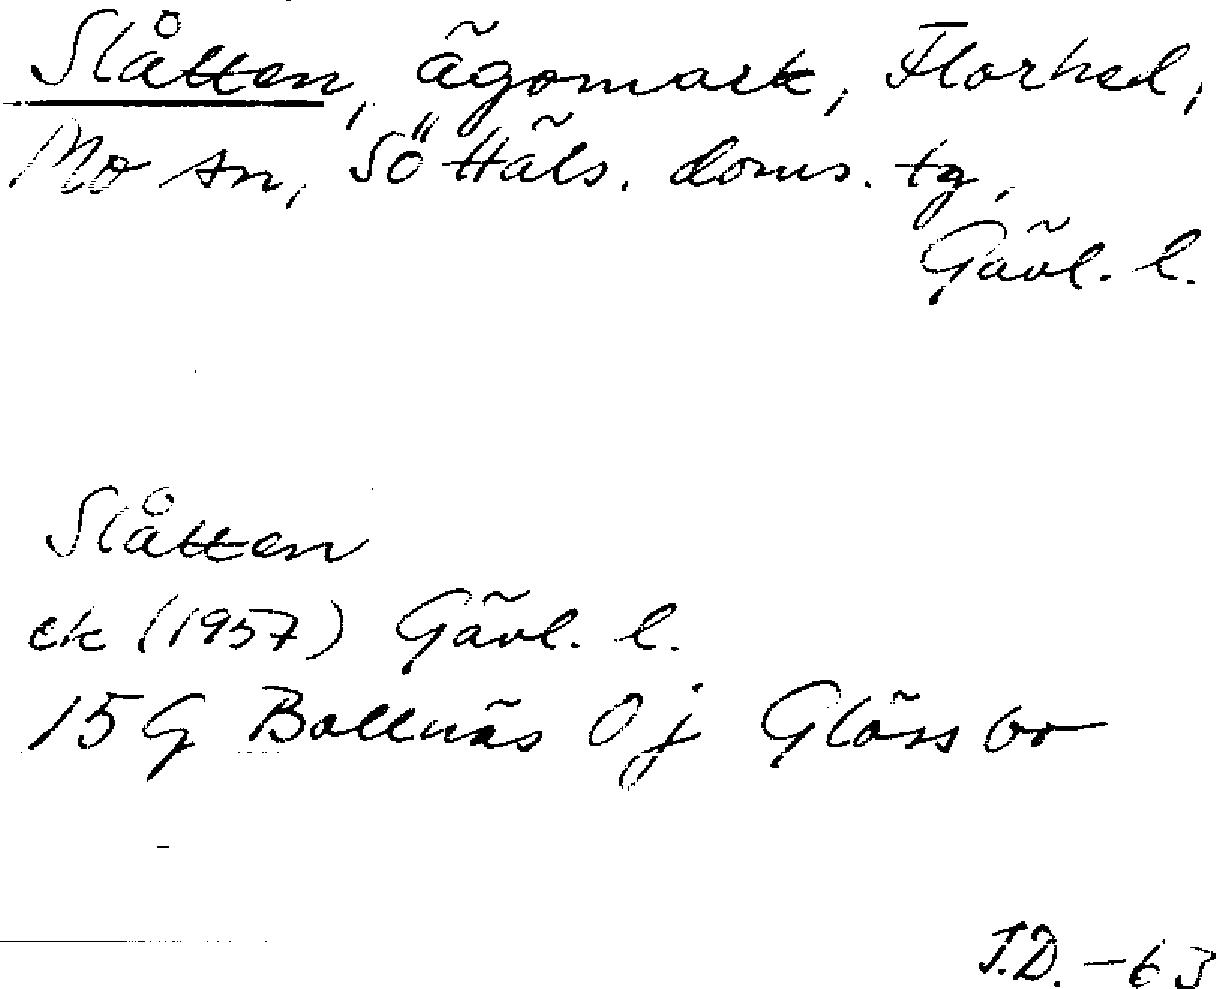 Slåtten, ägomark, Florhed,
Mo sn, Sö Häls. doms. tg,
Gävl. l.
Slåtten
ek (1957) Gävl. l.
15 G Bollnäs 0 j Glössbo
J.D. -63